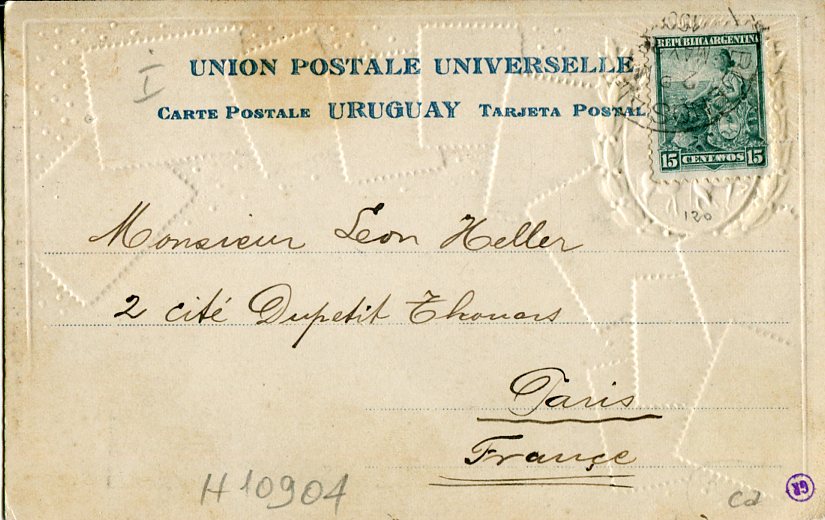 I
UNION POSTALE UNIVERSELLE
CARTE POSTALE URUGUAY TARJETA POSTAL
REPÚBLICA ARGENTINA
15 CENTAVOS 15
120
Monsieur Leon Heller
2 cité Dupetit Thouars
Paris
France
H10904
Cd
GR